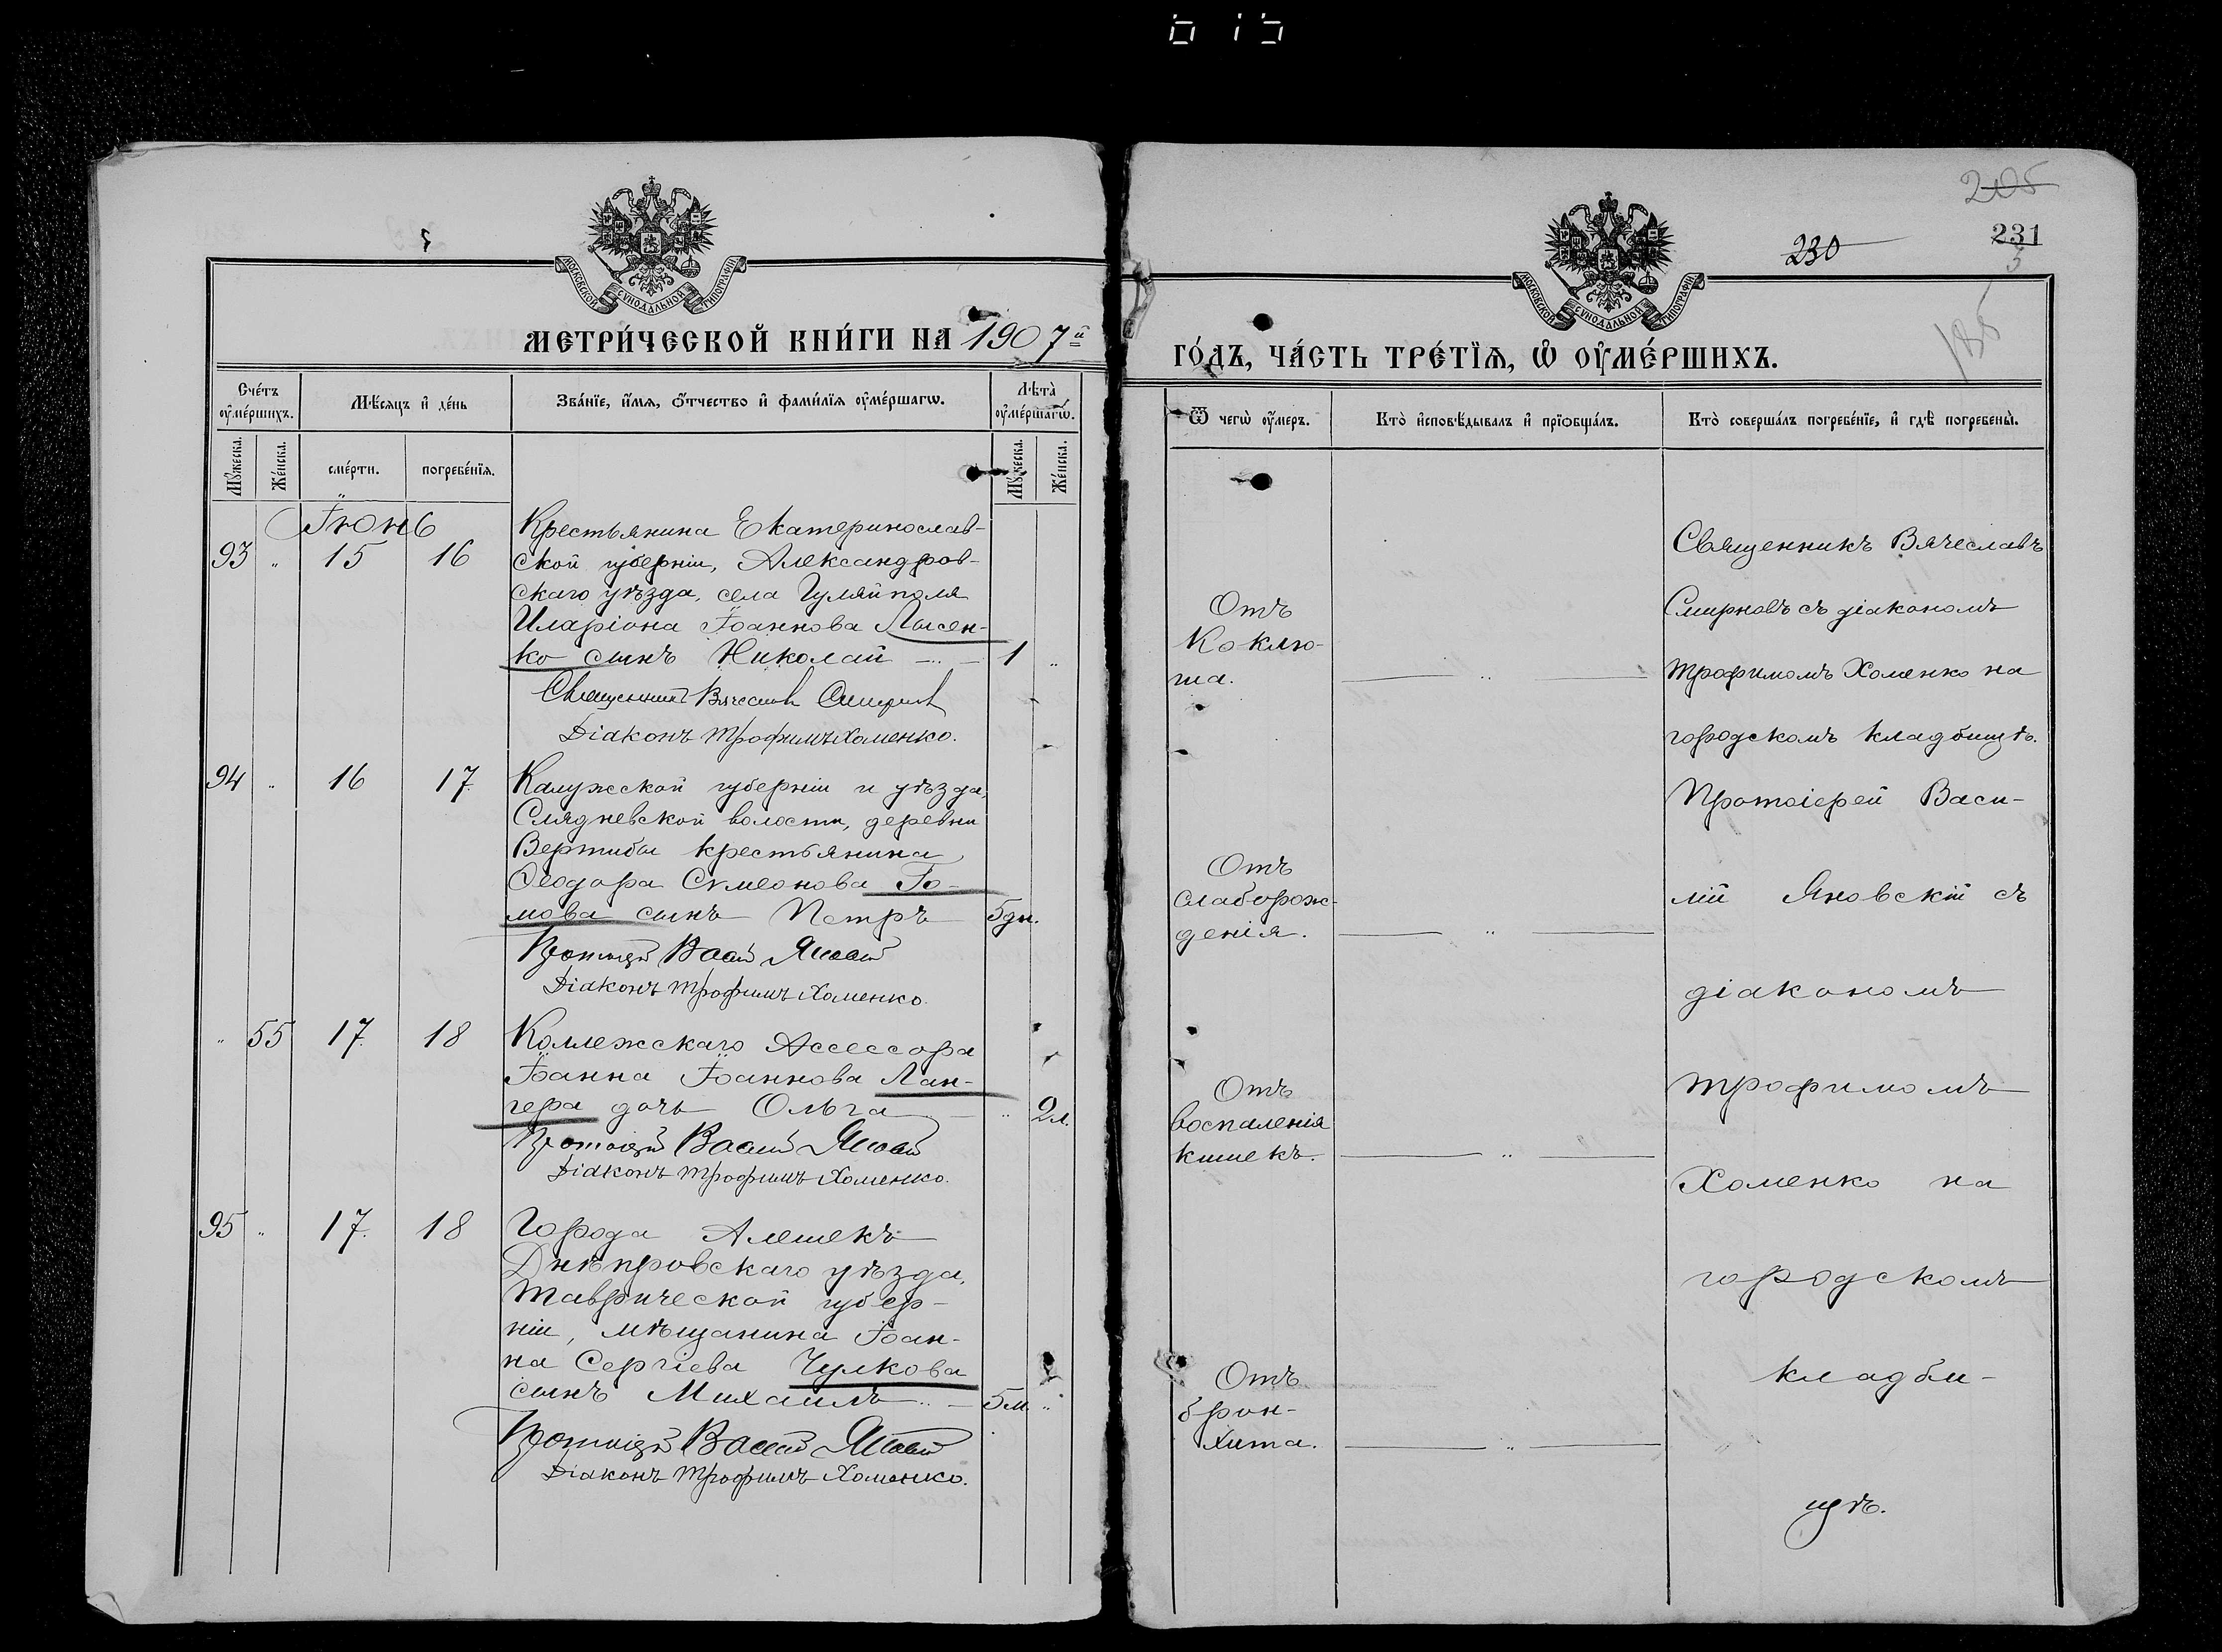 205
230
231
5
185
МОСКОВСКОЙ СУНОДАЛЬНОЙ ТИПОГРАФІИ
МЕТРИ́ЧЕСКОЙ КНИ́ГИ НА 1907й
Сче́тъ ᲂу҆ме́ршихъ.
Мꙋ́жеска.
Же́нска.
Мѣ́сяцъ и҆ де́нь
сме́рти.
погребе́нїя.
Зва́нїе, и҆́мя, ѻ҆́тчество и҆ фами́лїя ᲂу҆ме́ршагѡ.
Лѣ́та ᲂу҆ме́ршагѡ.
Мꙋ́жеска.
Же́нска.
Іюнь
93 " 15 16
Крестьянина Екатеринослав-
ской губерніи, Александров-
скаго уѣзда, села Гуляйполя
Иларіона Іоаннова Лысен-
ко сынъ Николай 1 "
Священникъ Вячеславъ Смирновъ
Діаконъ Трофимъ Хоменко.
94 " 16 17
Калужской губерніи и уѣзда,
Слядневской волости, деревни
Вертибы крестьянина
Ѳеодора Сѵмеонова Го-
мова сынъ Петръ 5 дн.
Протоіерей Васи Яновскій
Діаконъ Трофимъ Хоменко.
" 55 17 18
Коллежскаго Ассессора
Іоанна Іоаннова Лан-
гера дочь Ольга " 2 л.
Протоіерей Васи Яновскій
Діаконъ Трофимъ Хоменко.
95 " 17 18
Города Алешекъ
Днѣпровскаго уѣзда,
Таврической губер-
ніи, мѣщанина Іоан-
на Сергіева Чулкова
сынъ Михаилъ 5 м. "
Протоіерей Васи Яновскій
Діаконъ Трофимъ Хоменко.
МОСКОВСКОЙ СУНОДАЛЬНОЙ ТИПОГРАФІИ
ГО́ДЪ, ЧА́СТЬ ТРЕ́ТЇЯ, Ѡ҆ ОУ҆МЕ́РШИХЪ.
Ѿ чегѡ̀ ᲂу҆́меръ.
Кто̀ и҆сповѣ́дывалъ и҆ прїѻбща́лъ.
Кто̀ соверша́лъ погребе́нїе, и҆ гдѣ̀ погребены̀.
Отъ
Коклю-
ша.
Отъ
слаборож-
денія.
Отъ
воспаленія
кишекъ.
Отъ
брон-
хита.
Священникъ Вячеславъ
Смирновъ съ діакономъ
Трофимомъ Хоменко на
городскомъ кладбищѣ.
Протоіерей Васи-
лій Яновскій съ
діакономъ
Трофимомъ
Хоменко на
городскомъ
кладби-
щѣ.